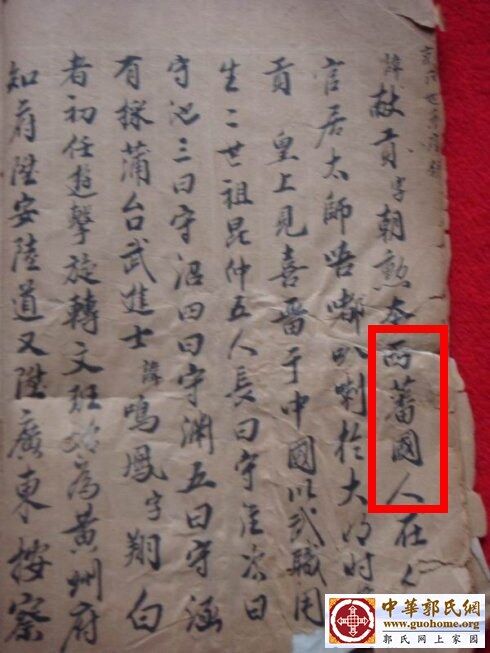 諱杖貢字朝勲本西蕃國人在
官居太師唔嘟叭喇於大明時
貢 皇上見喜晋于中國以武職用
生二世祖昆仲五人長曰守淮次曰
守池三曰守沼四曰守渊五曰守涵
有採蒲台武進士諱鳴鳳字翔白
者初任遊擊旋轉文班始爲黄州府
知府陞安陸道又陞廣東按察
中華郭氏網
www.guohome.org
郭氏网上家园